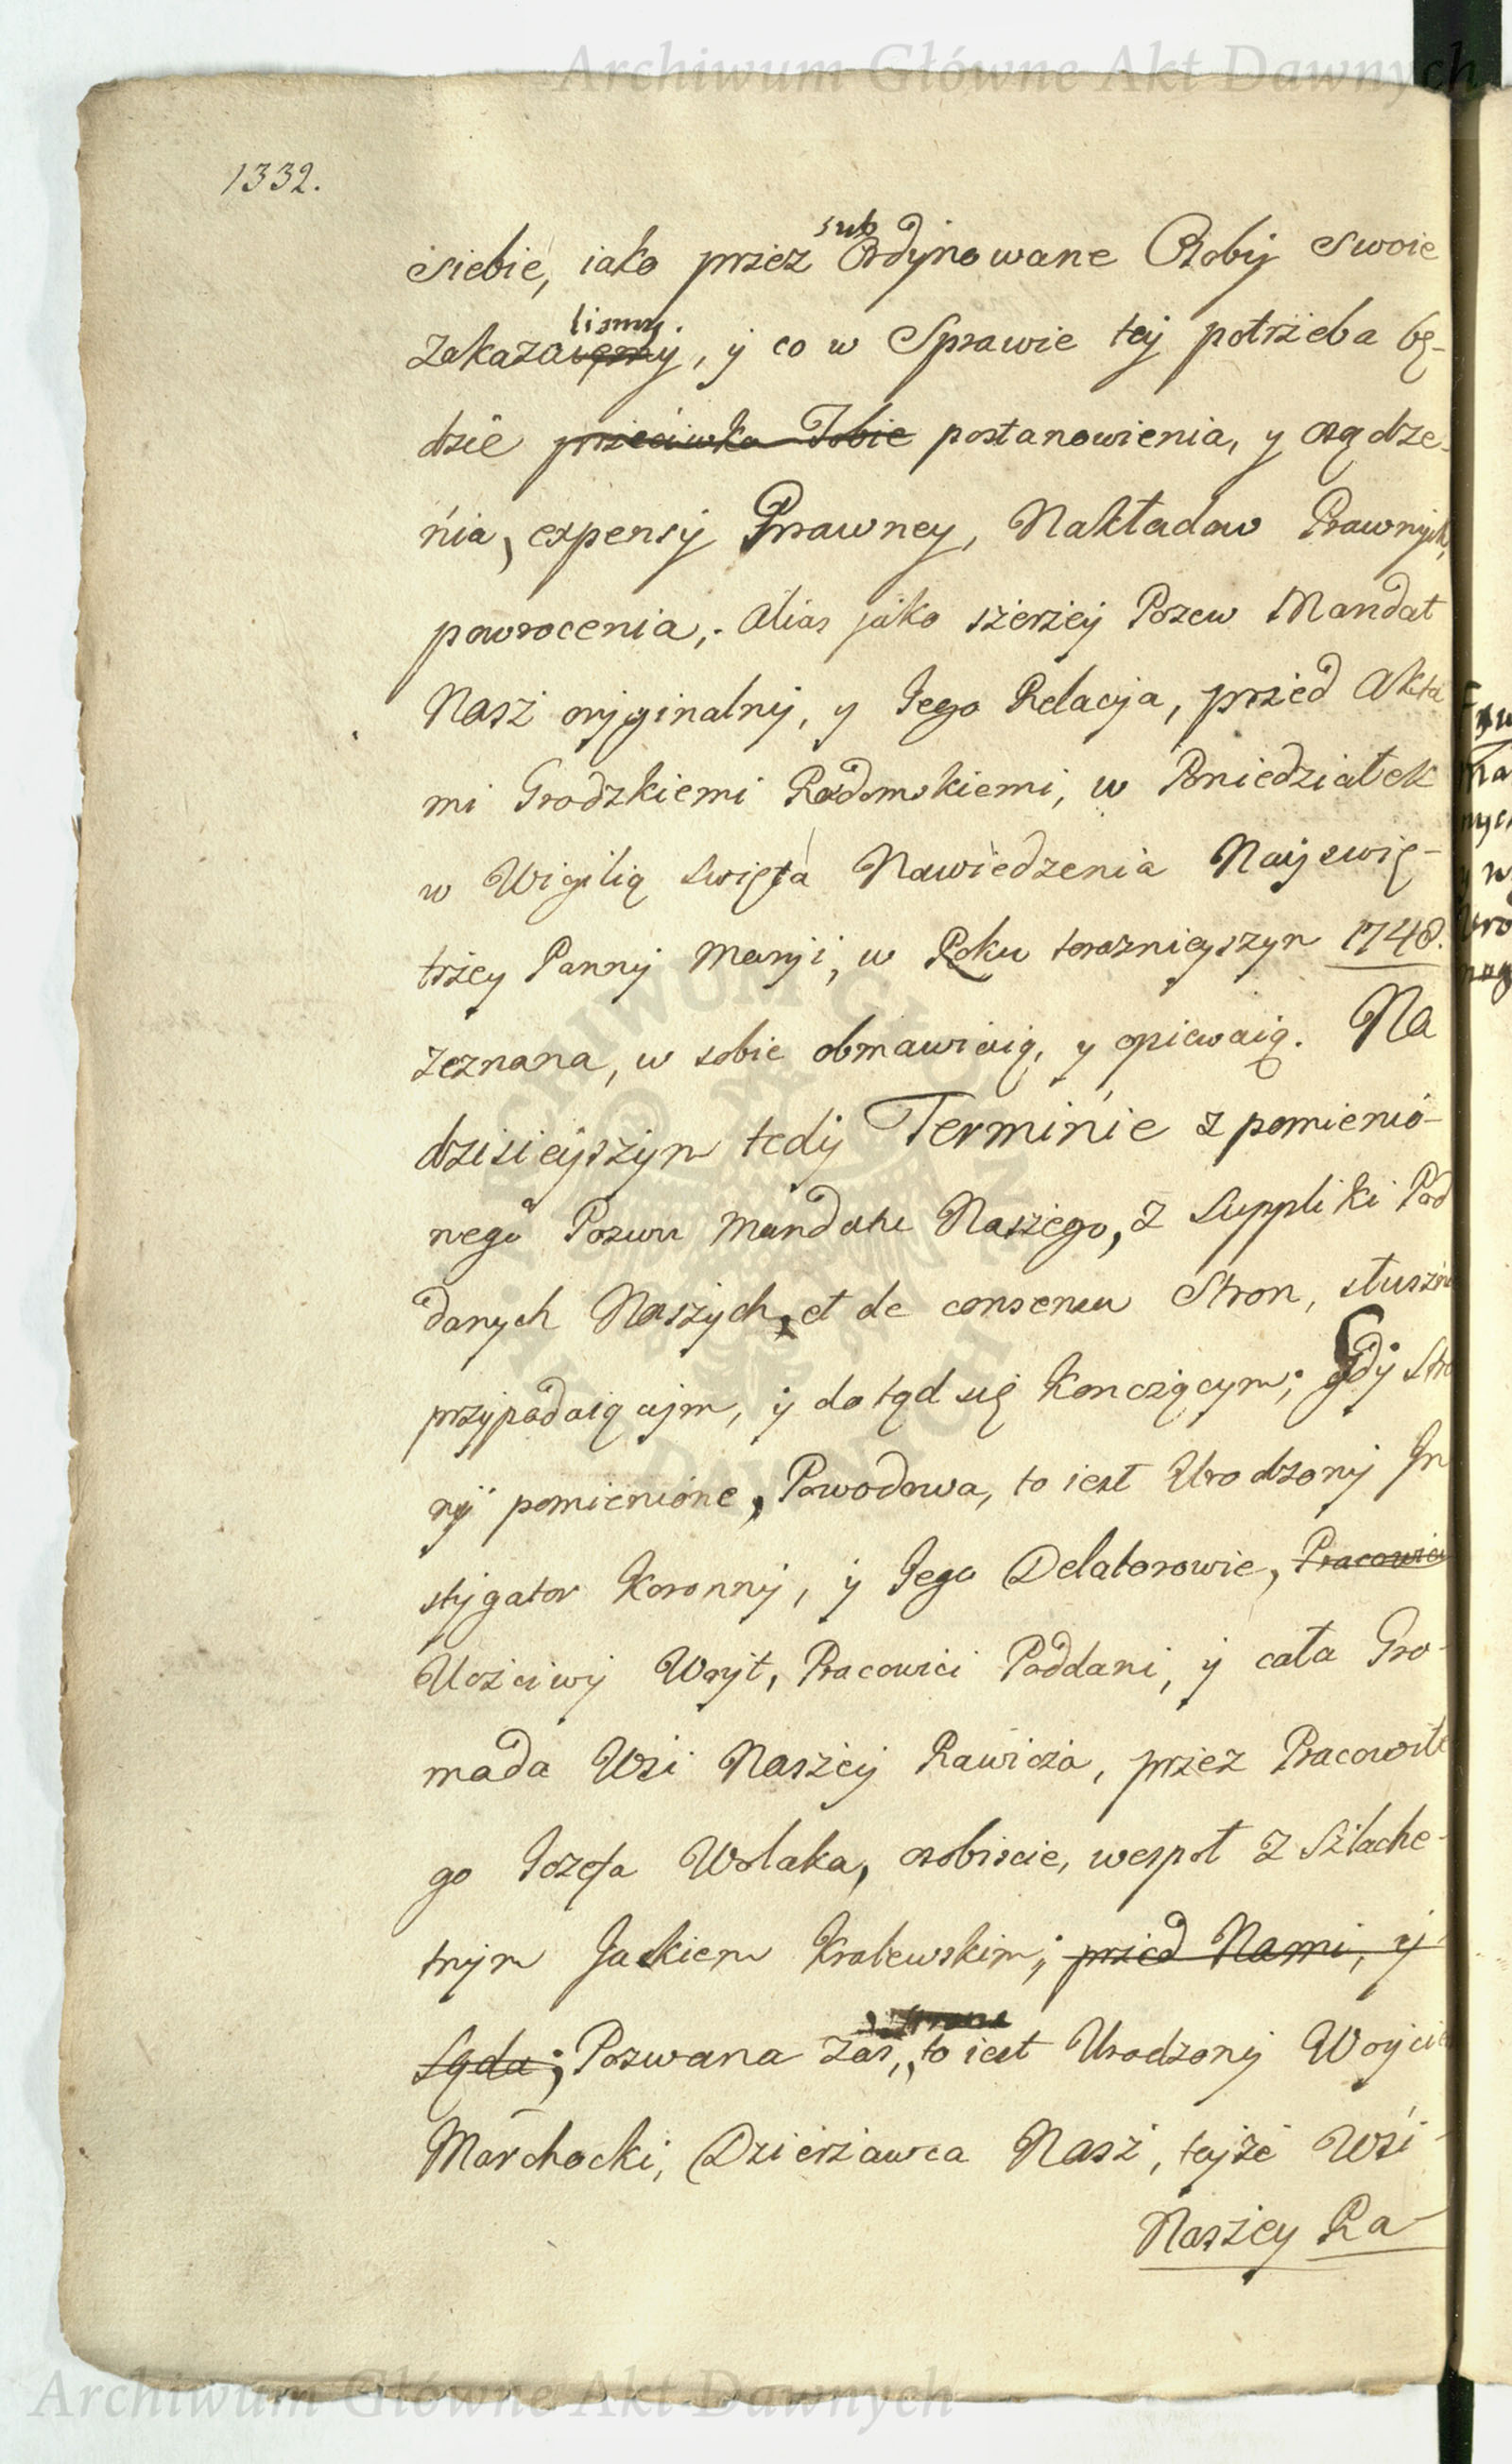 Archiwum Główne Akt Dawnych
1332.
sub
siebie, iako przez Ordynowane Osoby swoie
lismy.
Zakazaięmy, y co w Sprawie tey potrzeba bę-
dzie przeciwko Tobie postanowienia, y osądze-
nia, expensy Prawney, Nakładow Prawnych,
powrocenia,. alias jako szerzey Pozew Mandat
Nasz oryginalny, y Jego Relacya, przed Akta
mi Grodzkiemi Radomskiemi, w Poniedziałek
w Wigilią Swięta Nawiedzenia Nayswię-
trzey Panny Maryi, w Roku teraznieyszym 1748.
zeznana, w sobie obmawiaią, y opiewaią. Na
dzisieyszym tedy Terminie z pomienio-
nego Pozwu Mandatu Naszego, z Suppliki Pod
danych Naszych, et de consensu Stron, słuszn
przypadaiącym, y dotąd się konczącym; gdy Stro
ny pomienione, Powodowa, to iest Urodzony In
stygator Koronny, y Jego Delatorowie, Pracowici
Uczciwy Woyt, Pracowici Poddani, y cała Gro-
mada Wsi Naszey Rawicza, przez Pracowite
go Jozefa Wolaka, osobiscie, wespoł z Szlache-
tnym Jackiem Kralewskim; przed Nami, y
Sądu; Pozwana zas, to iest Urodzony Woycie
Marchocki, Dzierzawca Nasz, teyze Wsi
Naszey Ra-
Archiwum Główne Akt Dawnych